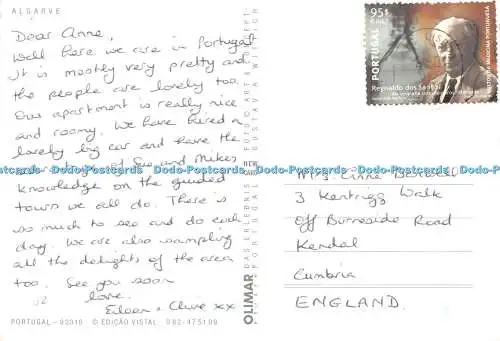 ALGARVE
Dear Anne,
Well here we are in Portugal
it is mostly very pretty and
the people are lovely too.
Our apartment is really nice
and roomy. We have hired a
lovely big car and have the
of Sue and Mikes
knowledge on the guided
tours we all do. There is
so much to see and do each
day. We are also sampling
all the delights of the area
too. See you soon
love.
Eileen + Clive xx
PORTUGAL - 92310 © EDIÇÃO VISTAL 082-475109
OLIMAR
DAS ERLEBNIS
PORTUGAL
95$
PORTUGAL
Reynaldo dos Santos
Mrs Anne
3 Kentrigg Walk
Off Burneside Road
Kendal
Cumbria
ENGLAND.
Dodo-Postcards Dodo-Postcards Dodo-Postcards Dodo-Postcards Dodo-Postcards